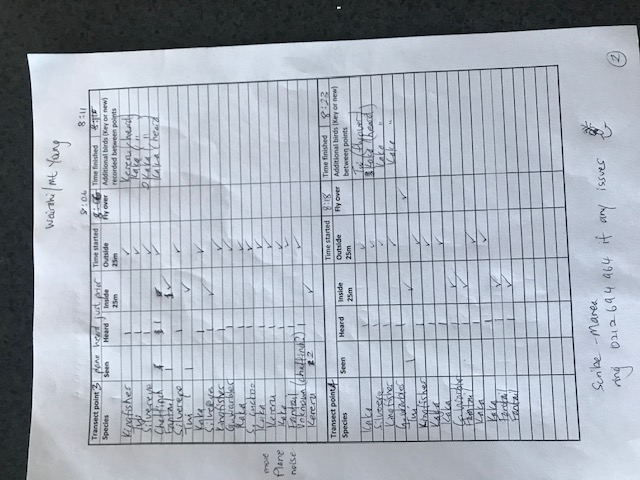 Wairohi/Mt Young
8:06 8:11
Transect point 3 plane heard just prior Time started Time finished
Species Seen Heard Inside 25m Outside 25m Fly over Additional birds (Key or new) recorded between points
Kingfisher 1 ✓ Kereru (heard)
Tui 1 ✓ Kaka ( " )
Silvereye 1 ✓ 2 Kaka ( " )
Chaffinch 1 Kaka (heard
Fantail 1 ✓
Silvereye 1 ✓
Tui 1 ✓
Kaka 1 ✓
Silvereye 1 ✓
Kingfisher 1 ✓
G. warbler 1 ✓
Kaka 1 ✓
S. cuckoo 1 ✓
Kaka 1 ✓
more plane noise
Kereru 1 ✓
Kaka 1 ✓
Fantail 1 ✓
Unknown (chaffinch?) 1 ✓
Kereru 2 ✓
Transect point 4 Time started 8:18 Time finished 8:23
Species Seen Heard Inside 25m Outside 25m Fly over Additional birds (Key or new) between points
Kaka 1 ✓ Tui (flyover)
Silvereye 1 ✓ Kaka (heard)
Kingfisher 1 ✓ Kaka "
G. warbler 1 ✓ Kaka "
Tui 1 ✓ ✓
Kingfisher 1 ✓
Kaka 1 ✓
Kaka 1 ✓
G. Warbler 1 ✓
Fantail 1 ✓
Kaka 1 ✓
Kaka 1 ✓
Fantail 1 ✓
Fantail 1 ✓
Scribe - Marea
ring 0212694964 if any issues
2